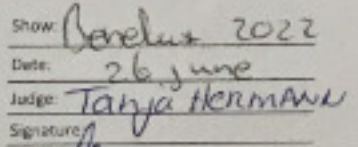 Show: Benelux 2022
Date: 26 june
Judge: Tanja HERMANN
Signature